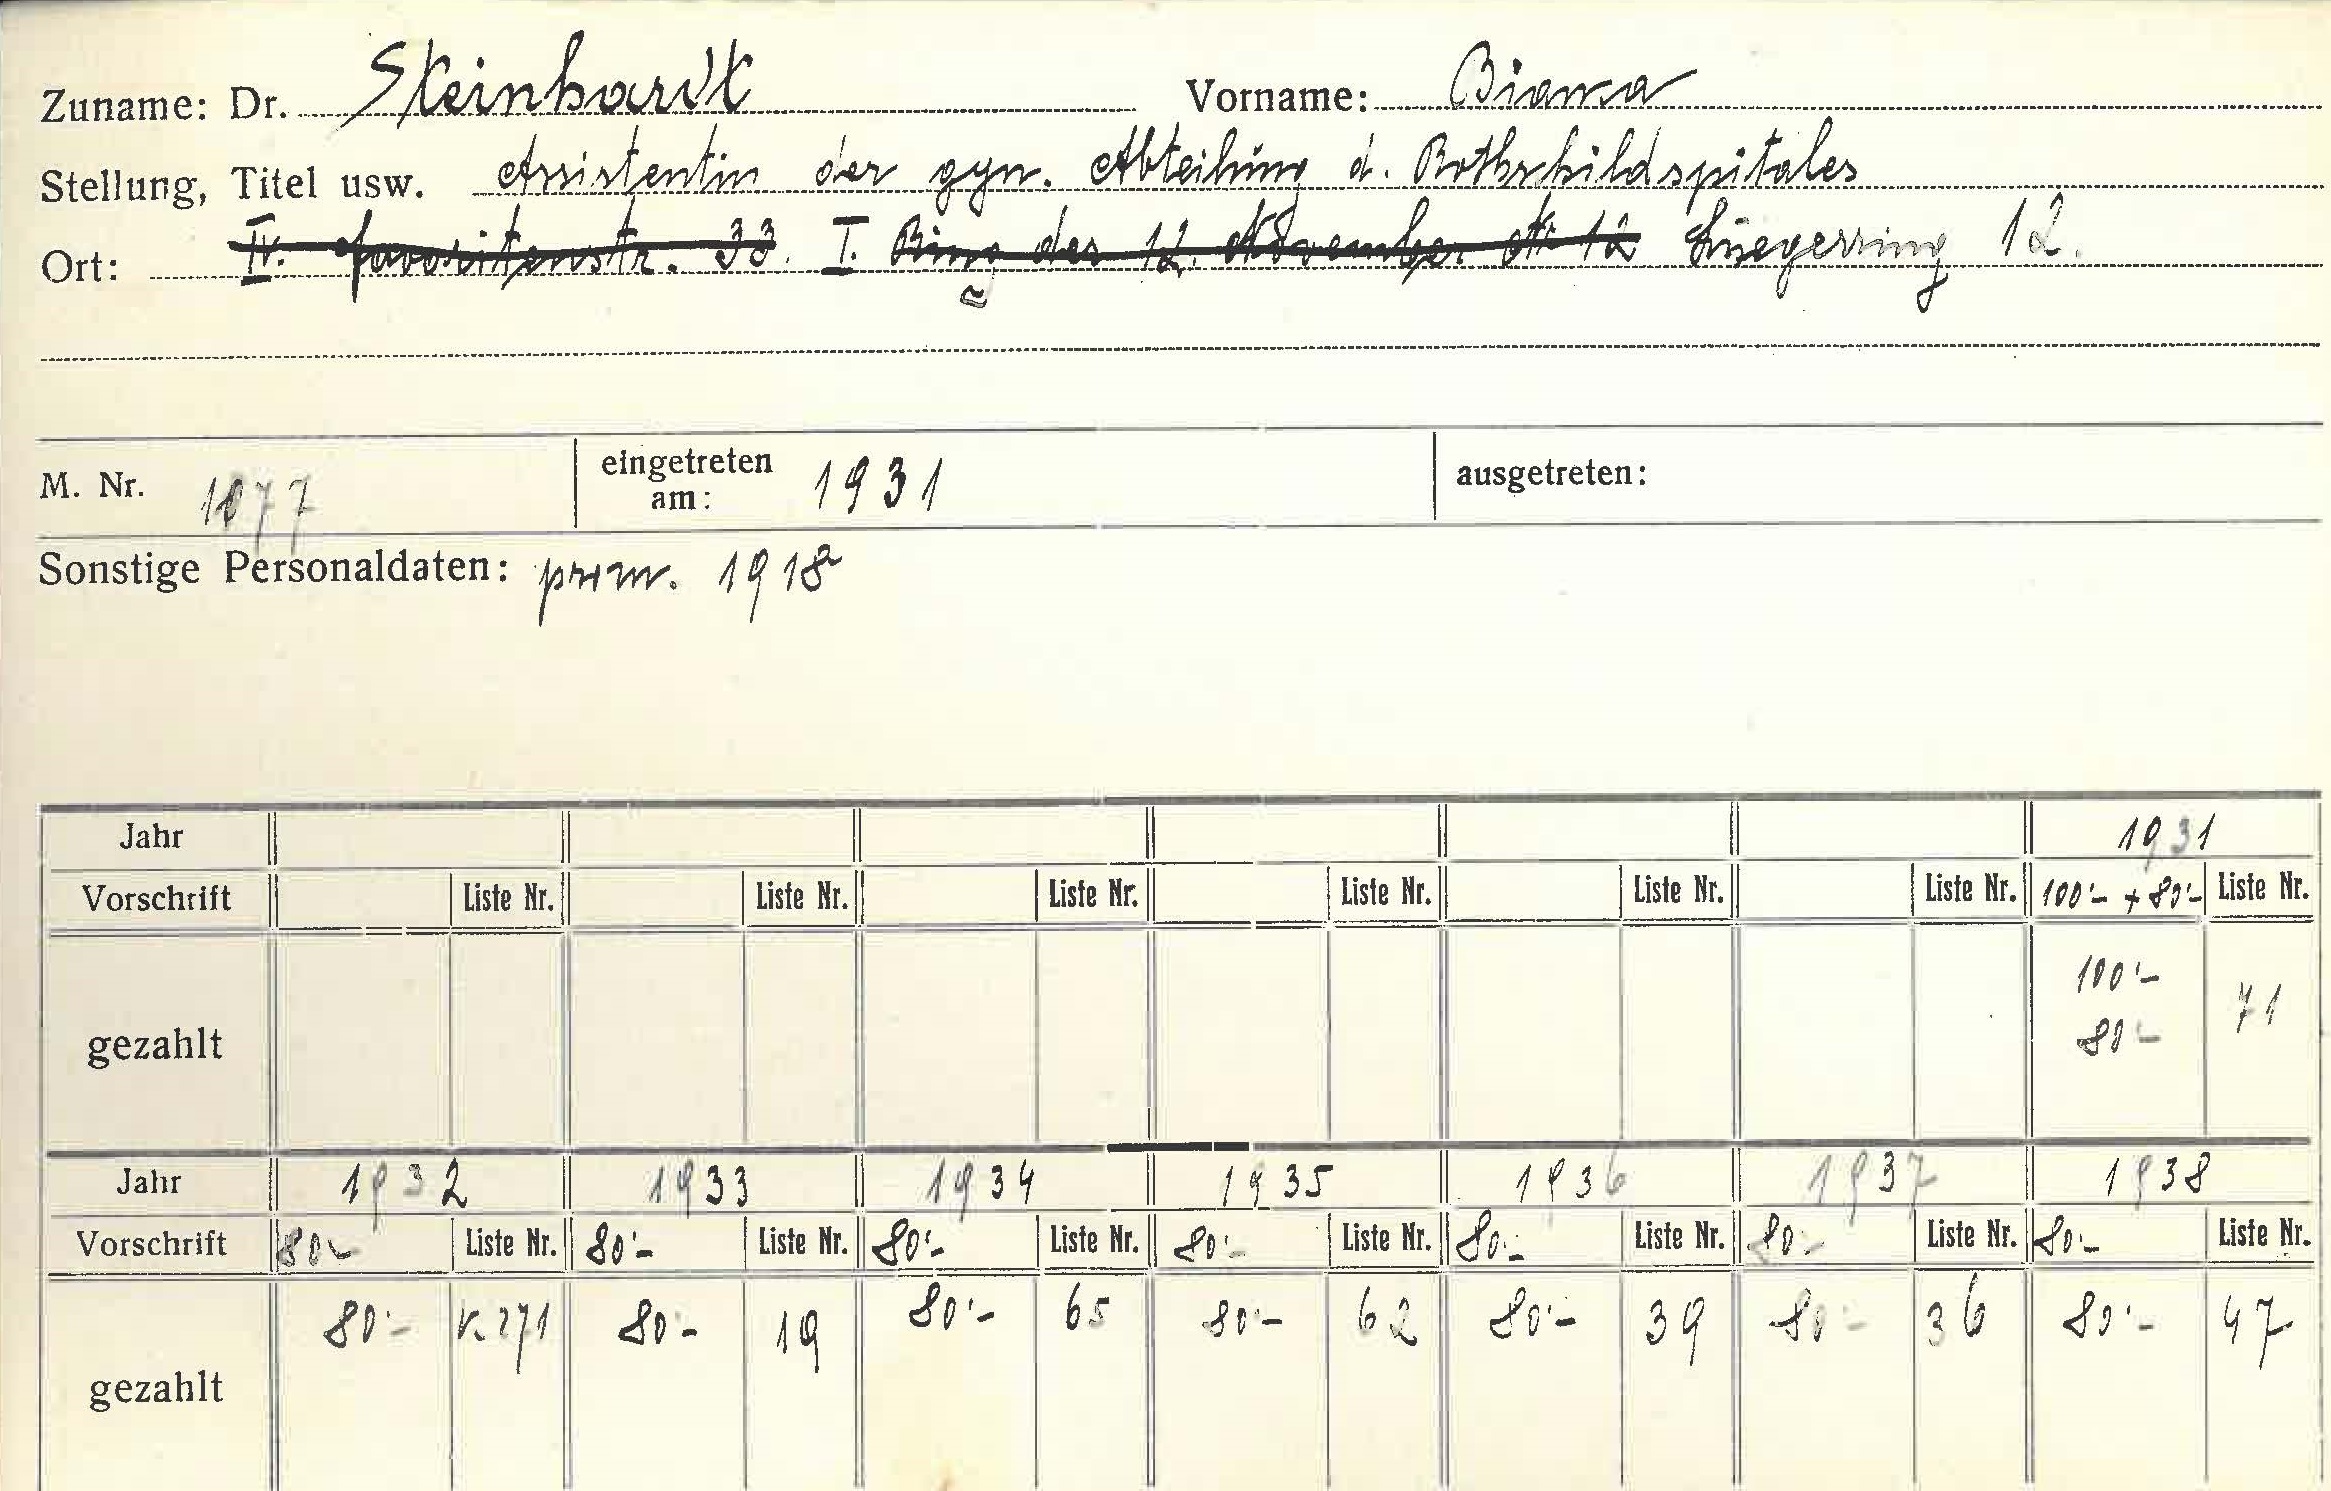 Zuname: Dr. Steinhardt Vorname: Bianca
Stellung, Titel usw. Assistentin der gyn. Abteilung d. Rothschildspitales
Ort: IV. Favoritenstr. 33. I. Ring des 12. November 12 Luegerring 12.
M. Nr. 1077 eingetreten am: 1931 ausgetreten:
Sonstige Personaldaten: prom. 1918
Jahr 1931
Vorschrift Liste Nr. Liste Nr. Liste Nr. Liste Nr. Liste Nr. Liste Nr. 100'- + 80'- Liste Nr.
gezahlt 100'- 80'- 71
Jahr 1932 1933 1934 1935 1936 1937 1938
Vorschrift 80- Liste Nr. 80'- Liste Nr. 80'- Liste Nr. 80'- Liste Nr. 80- Liste Nr. 80- Liste Nr. 80- Liste Nr.
gezahlt 80'- K. 271 80- 19 80'- 65 80'- 62 80'- 39 80- 36 80'- 47